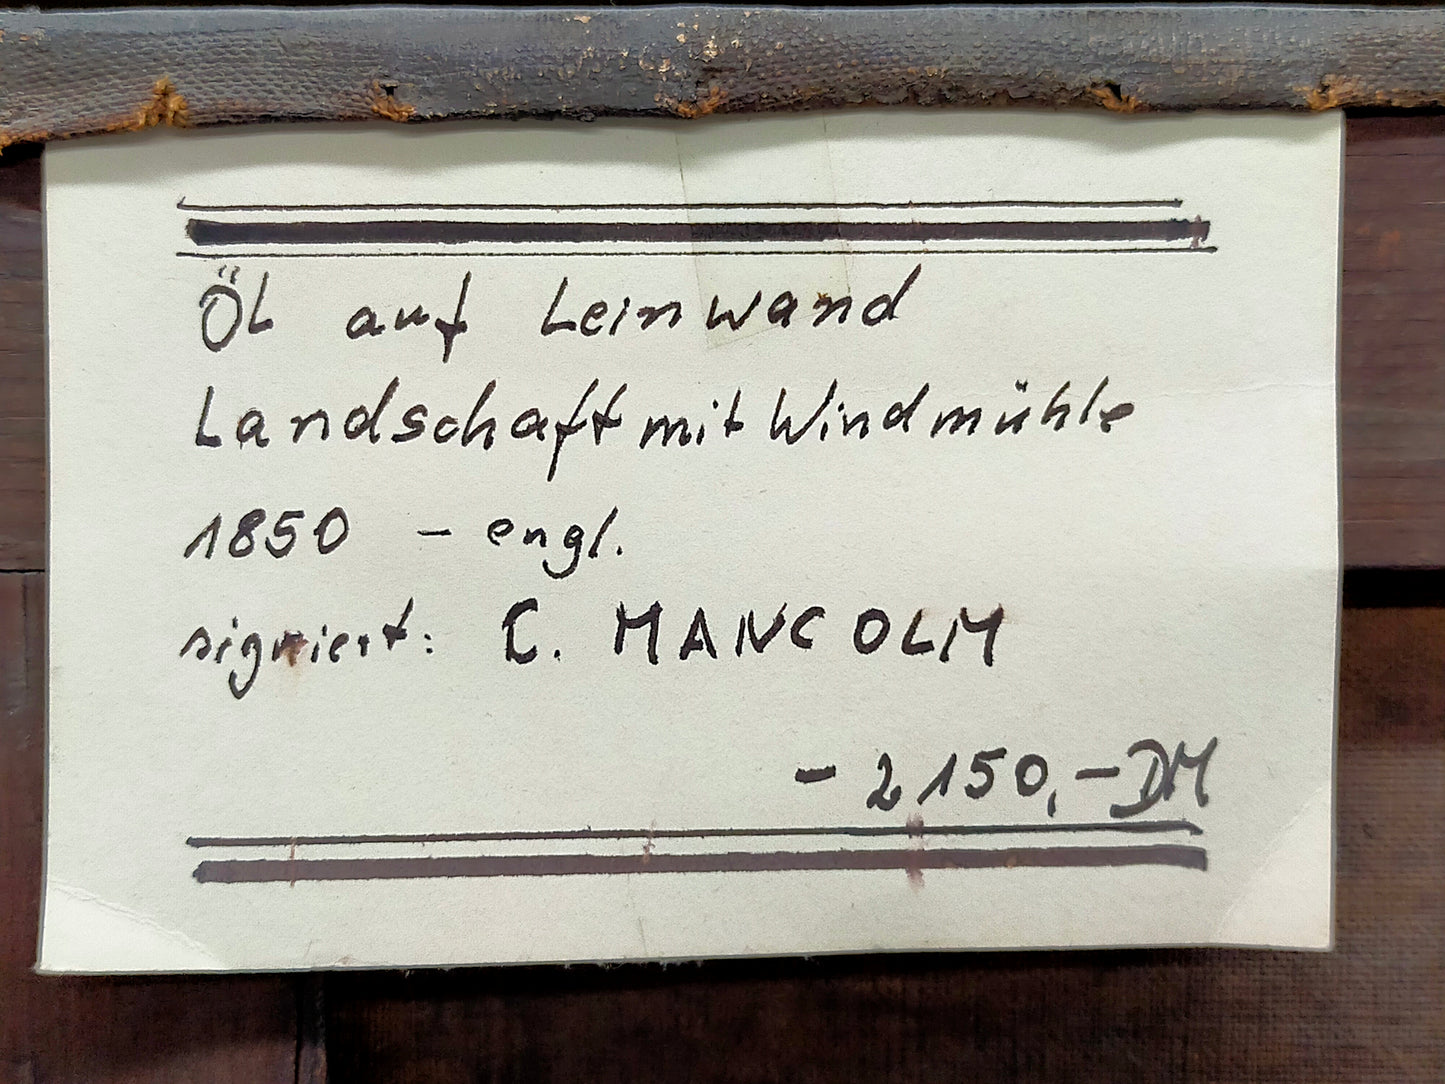 Öl auf Leinwand
Landschaft mit Windmühle
1850 – engl.
signiert: C. MANCOLM
– 2150,– DM